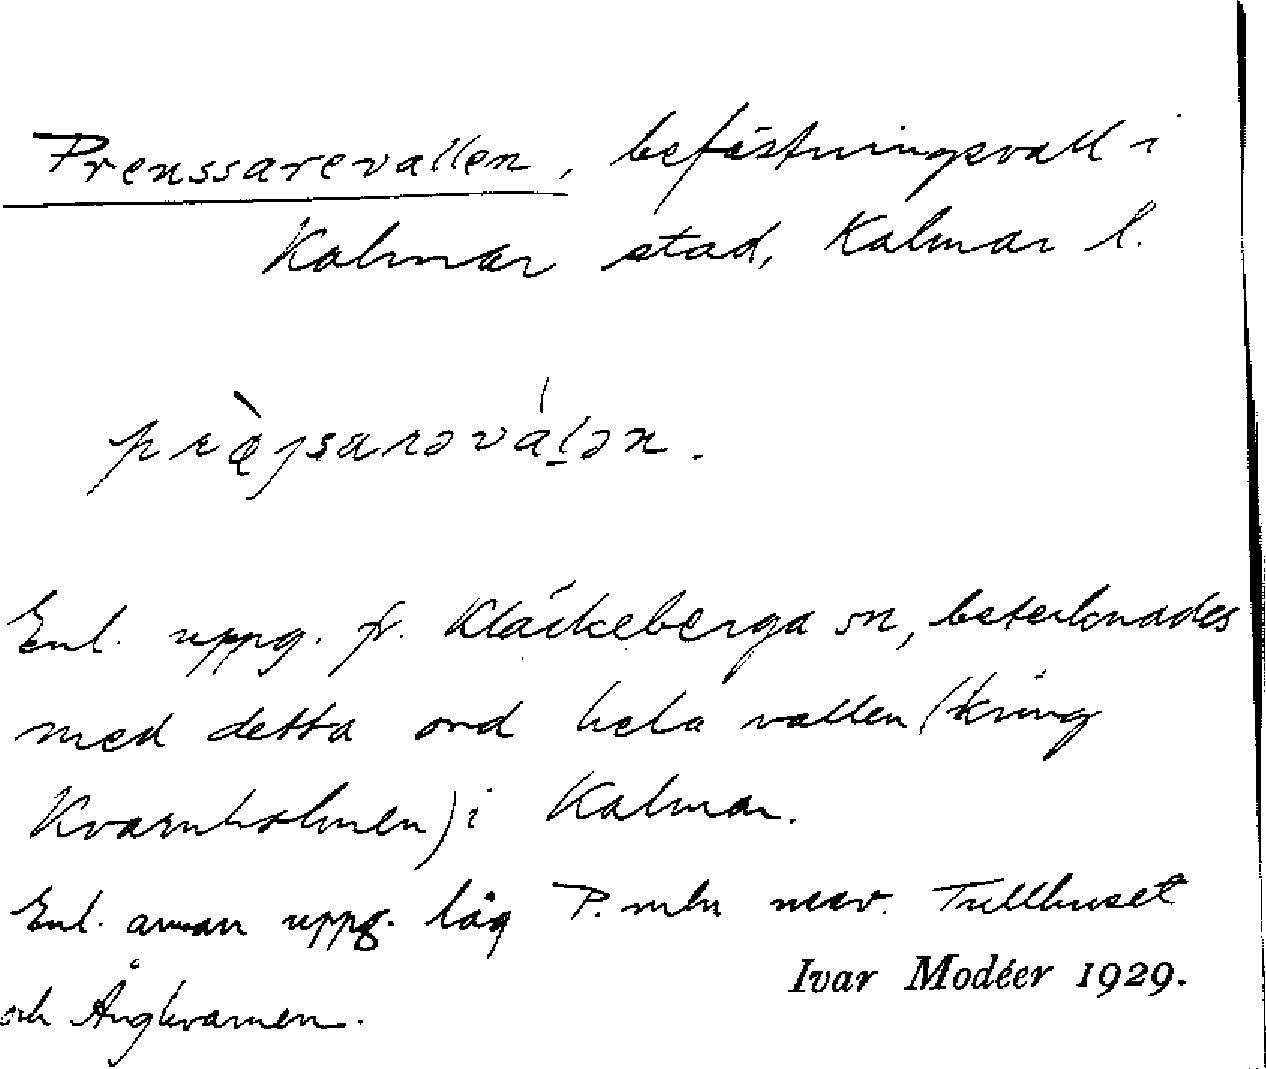 Preussarevallen, befästningsvall i
Kalmar stad, Kalmar l.
præ̀jsarəvál̠ən.
Enl. uppg. fr. Kläckeberga sn, betecknades
med detta ord hela vallen (kring
Kvarnholmen) i Kalmar.
Enl. annan uppg. låg P. mln nuv. Tullhuset
och Ångkvarnen.
Ivar Modéer 1929.